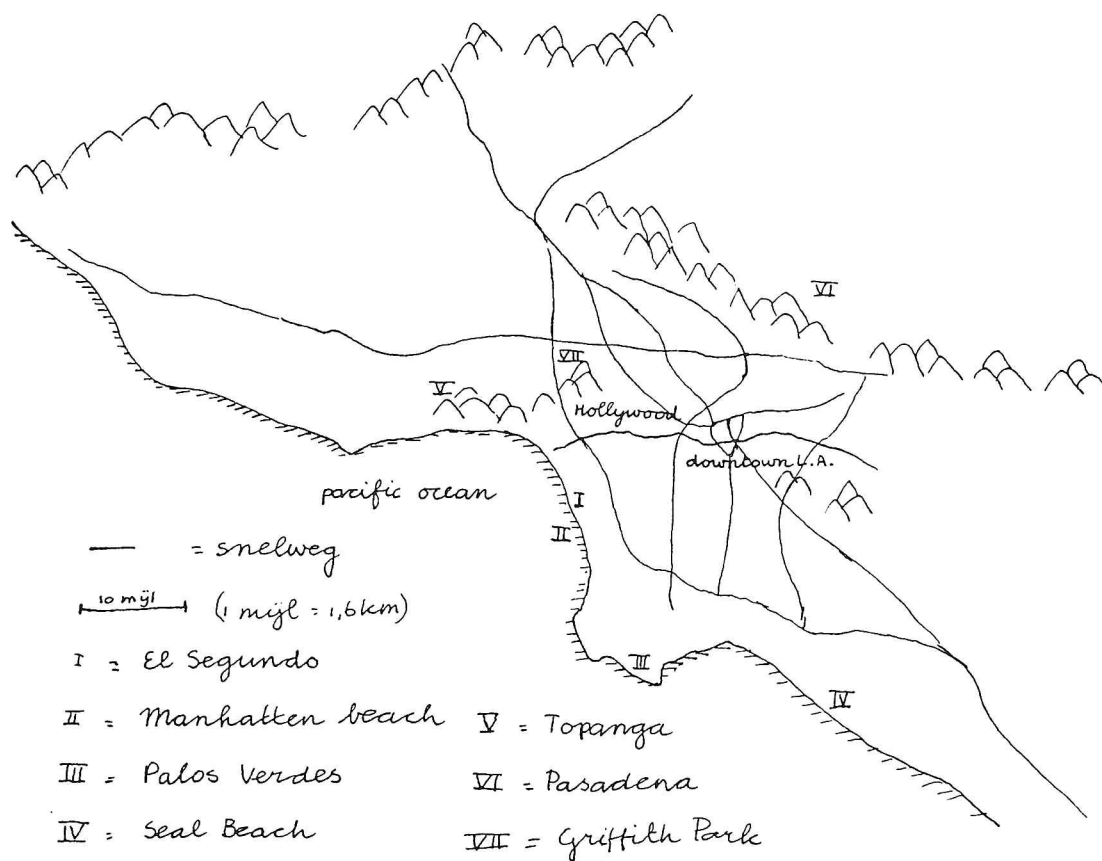 VI
VII
V
Hollywood
downtown L.A.
pacific ocean
I
II
III
IV
— = snelweg
10 mijl (1 mijl = 1,6 km)
I = El Segundo
II = Manhatten beach
III = Palos Verdes
IV = Seal Beach
V = Topanga
VI = Pasadena
VII = Griffith Park